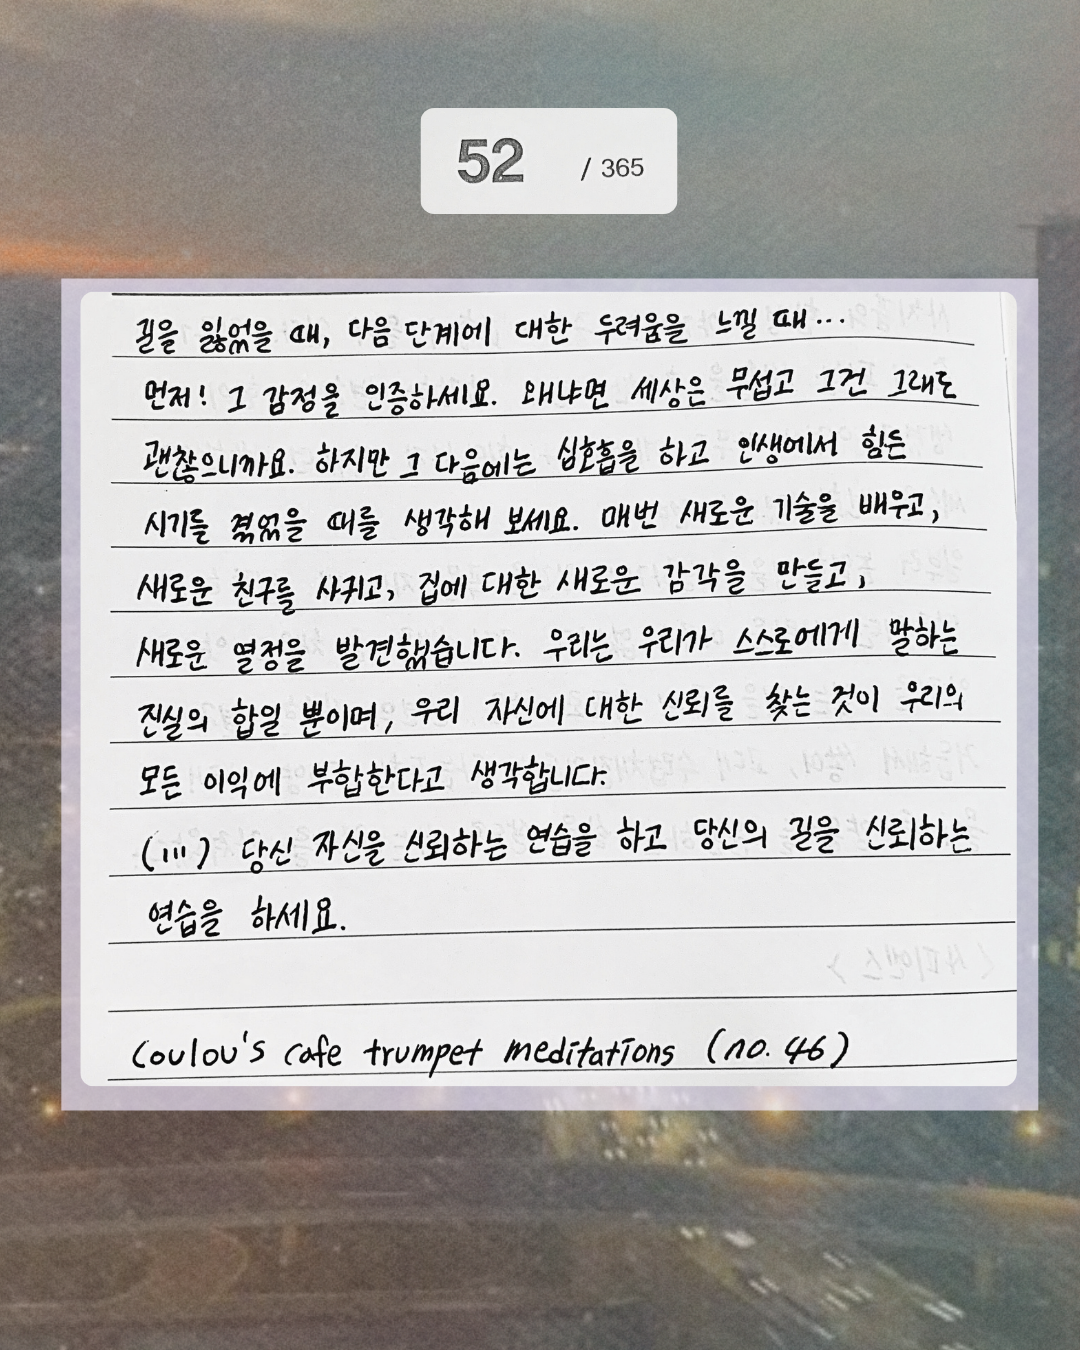 52 / 365
길을 잃었을 때, 다음 단계에 대한 두려움을 느낄 때...
먼저! 그 감정을 인증하세요. 왜냐면 세상은 무섭고 그건 그래도
괜찮으니까요. 하지만 그 다음에는 심호흡을 하고 인생에서 힘든
시기를 겪었을 때를 생각해 보세요. 매번 새로운 기술을 배우고,
새로운 친구를 사귀고, 집에 대한 새로운 감각을 만들고,
새로운 열정을 발견했습니다. 우리는 우리가 스스로에게 말하는
진실의 합일 뿐이며, 우리 자신에 대한 신뢰를 찾는 것이 우리의
모든 이익에 부합한다고 생각합니다.
(111) 당신 자신을 신뢰하는 연습을 하고 당신의 길을 신뢰하는
연습을 하세요.
<사피엔스>
Coulou's cafe trumpet meditations (no. 46)